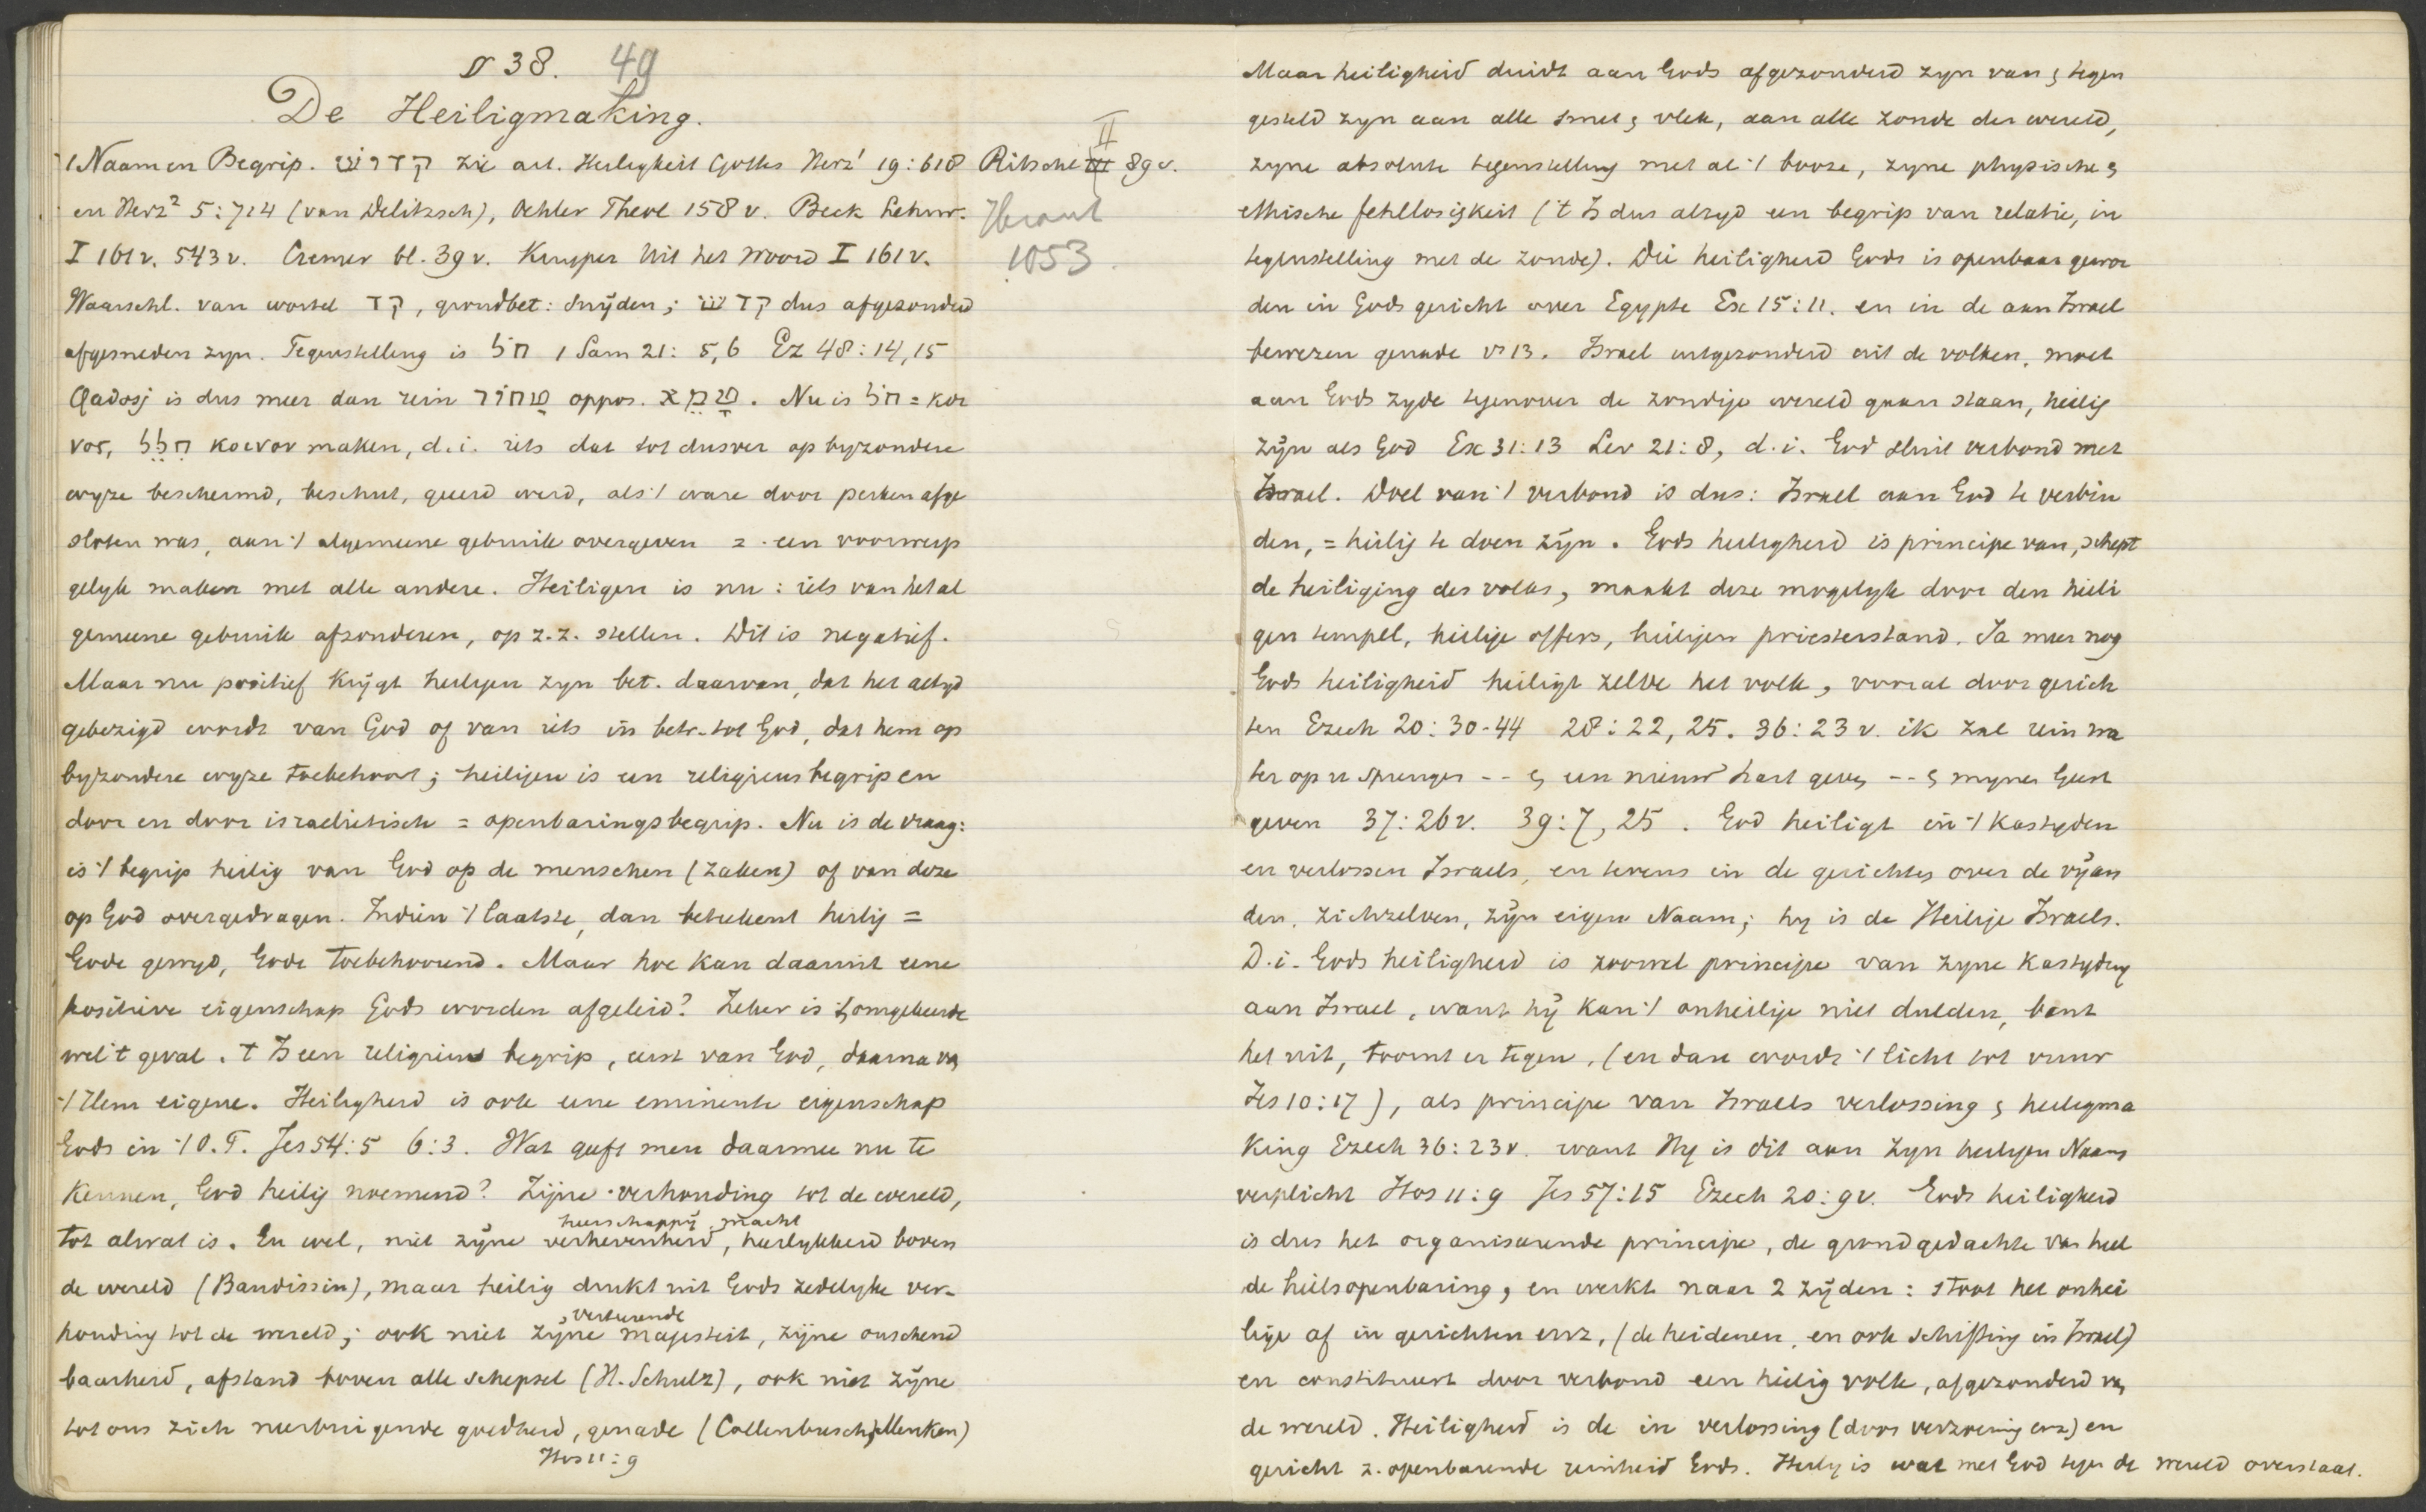 § 38. 49
De Heiligmaking.
1 Naam en Begrip. קדוש zie art. Heiligkeit Gottes Herz¹ 19:618 Ritschl II 89 v.
en Herz² 5:714 (van Delitzsch), Oehler Theol 158 v. Beck Lehrw.
I 161 v. 543 v. Cremer bl. 39 v. Kuyper Uit het Woord I 161 v. 1053
Waarschl. van wortel קד, grondbet: snijden; קדש dus afgezonderd
afgesneden zyn. Tegenstelling is חל 1 Sam 21: 5,6 Ez 48:14,15
Qadosj is dus meer dan rein טהור oppos. טמא. Nu is חל = koi
vos, חלל koivov maken, d.i. iets dat tot dusver op byzondere
wyze beschermd, beschut, geëerd werd, als 't ware door perken afge
sloten was, aan 't algemeene gebruik overgeven = een voorwerp
gelyk maken met alle andere. Heiligen is nu: iets van het al
gemeene gebruik afzonderen, op z.z. stellen. Dit is negatief.
Maar nu positief krijgt heiligen zyn bet. daarvan, dat het altyd
gebezigd wordt van God of van iets in betr. tot God, dat hem op
byzondere wyze toebehoort; heiligen is een religieus begrip en
door en door israelietisch = openbaringsbegrip. Nu is de vraag:
is 't begrip heilig van God op de menschen (zaken) of van deze
op God overgedragen. Indien 't laatste, dan beteekent heilig =
Gode gewyd, Gode toebehoorend. Maar hoe kan daaruit eene
positieve eigenschap Gods worden afgeleid? Zeker is 't omgekeerde
wel 't geval. 't Is een religieus begrip, eerst van God, daarna van
't Hem eigene. Heiligheid is ook eene eminente eigenschap
Gods in 't O.T. Jes 54:5 6:3. Wat geeft men daarmee nu te
kennen, God heilig noemend? Zijne verhouding tot de wereld,
heerschappij, macht
tot alwat is. En wel, niet zijne verhevenheid, heerlykheid boven
de wereld (Baudissin), maar heilig drukt uit Gods zedelyke ver-
verterende
houding tot de wereld; ook niet zijne majesteit, zijne onschend
baarheid, afstand boven alle schepsel (H. Schulz), ook niet zijne
tot ons zich neerbuigende goedheid, genade (Collenbusch, Menken)
Hos 11:9
Maar heiligheid duidt aan Gods afgezonderd zyn van & tegen
gesteld zyn aan alle smet & vlek, aan alle zonde der wereld,
zyne absolute tegenstelling met al 't booze, zyne physische &
ethische fehllosigkeit ('t Is dus altyd een begrip van relatie, in
tegenstelling met de zonde). Die heiligheid Gods is openbaar gewor
den in Gods gericht over Egypte Ex 15:11. en in de aan Israel
bewezen genade vs 13. Israel uitgezonderd uit de volken, moet
aan Gods zyde tegenover de zondige wereld gaan staan, heilig
zijn als God Ex 31:13 Lev 21:8, d.i. God sluit verbond met
Israel. Doel van 't verbond is dus: Israel aan God te verbin
den, = heilig te doen zijn. Gods heiligheid is principe van, schept
de heiliging des volks, maakt deze mogelyk door den heili
gen tempel, heilige offers, heiligen priesterstand. Ja meer nog
Gods heiligheid heiligt zelve het volk, vooral door gerich
ten Ezech 20:30-44 28:22, 25. 36:23 v. ik zal rein wa
ter op u sprengen -- & een nieuw hart geven -- & mynen Geest
geven 37:26 v. 39:7, 25. God heiligt in 't kastyden
en verlossen Israels, en tevens in de gerichten over de vijan
den, zichzelven, zijn eigen Naam; hy is de Heilige Israels.
D.i. Gods heiligheid is zoowel principe van zyne kastyding
aan Israel, want hij kan 't onheilige niet dulden, bant
het uit, toornt er tegen, (en dan wordt 't licht tot vuur
Jes 10:17), als principe van Israels verlossing & heiligma
king Ezech 36:23 v. want Hy is dit aan zyn heiligen Naam
verplicht Hos 11:9 Jes 57:15 Ezech 20:9 v. Gods heiligheid
is dus het organiseerende principe, de grondgedachte van heel
de heilsopenbaring, en werkt naar 2 zijden: stoot het onhei
lige af in gerichten enz, (de heidenen, en ook schifting in Israel)
en constitueert door verbond een heilig volk, afgezonderd van
de wereld. Heiligheid is de in verlossing (door verzoening enz) en
gericht z. openbarende reinheid Gods. Heilig is wat met God tegen de wereld overstaat.